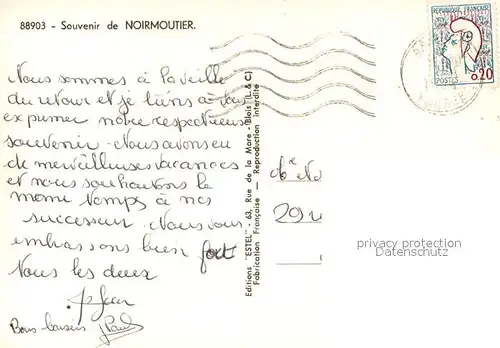 88903 - Souvenir de NOIRMOUTIER.
REPUBLIQUE FRANÇAISE
0,20
POSTES
Nous sommes à la veille
du retour et je tiens à vous
exprimer notre respectueux
souvenir. Nous avons eu
de merveilleuses vacances
et nous souhaitons le
meme temps à nos
successeur. Nous vous
embrassons bien fort
Nous les deux
Bons baisers
Editions "ESTEL" - 63, Rue de la Mare - Blois (L. & C.)
Fabrication Française - Reproduction interdite
privacy protection
Datenschutz